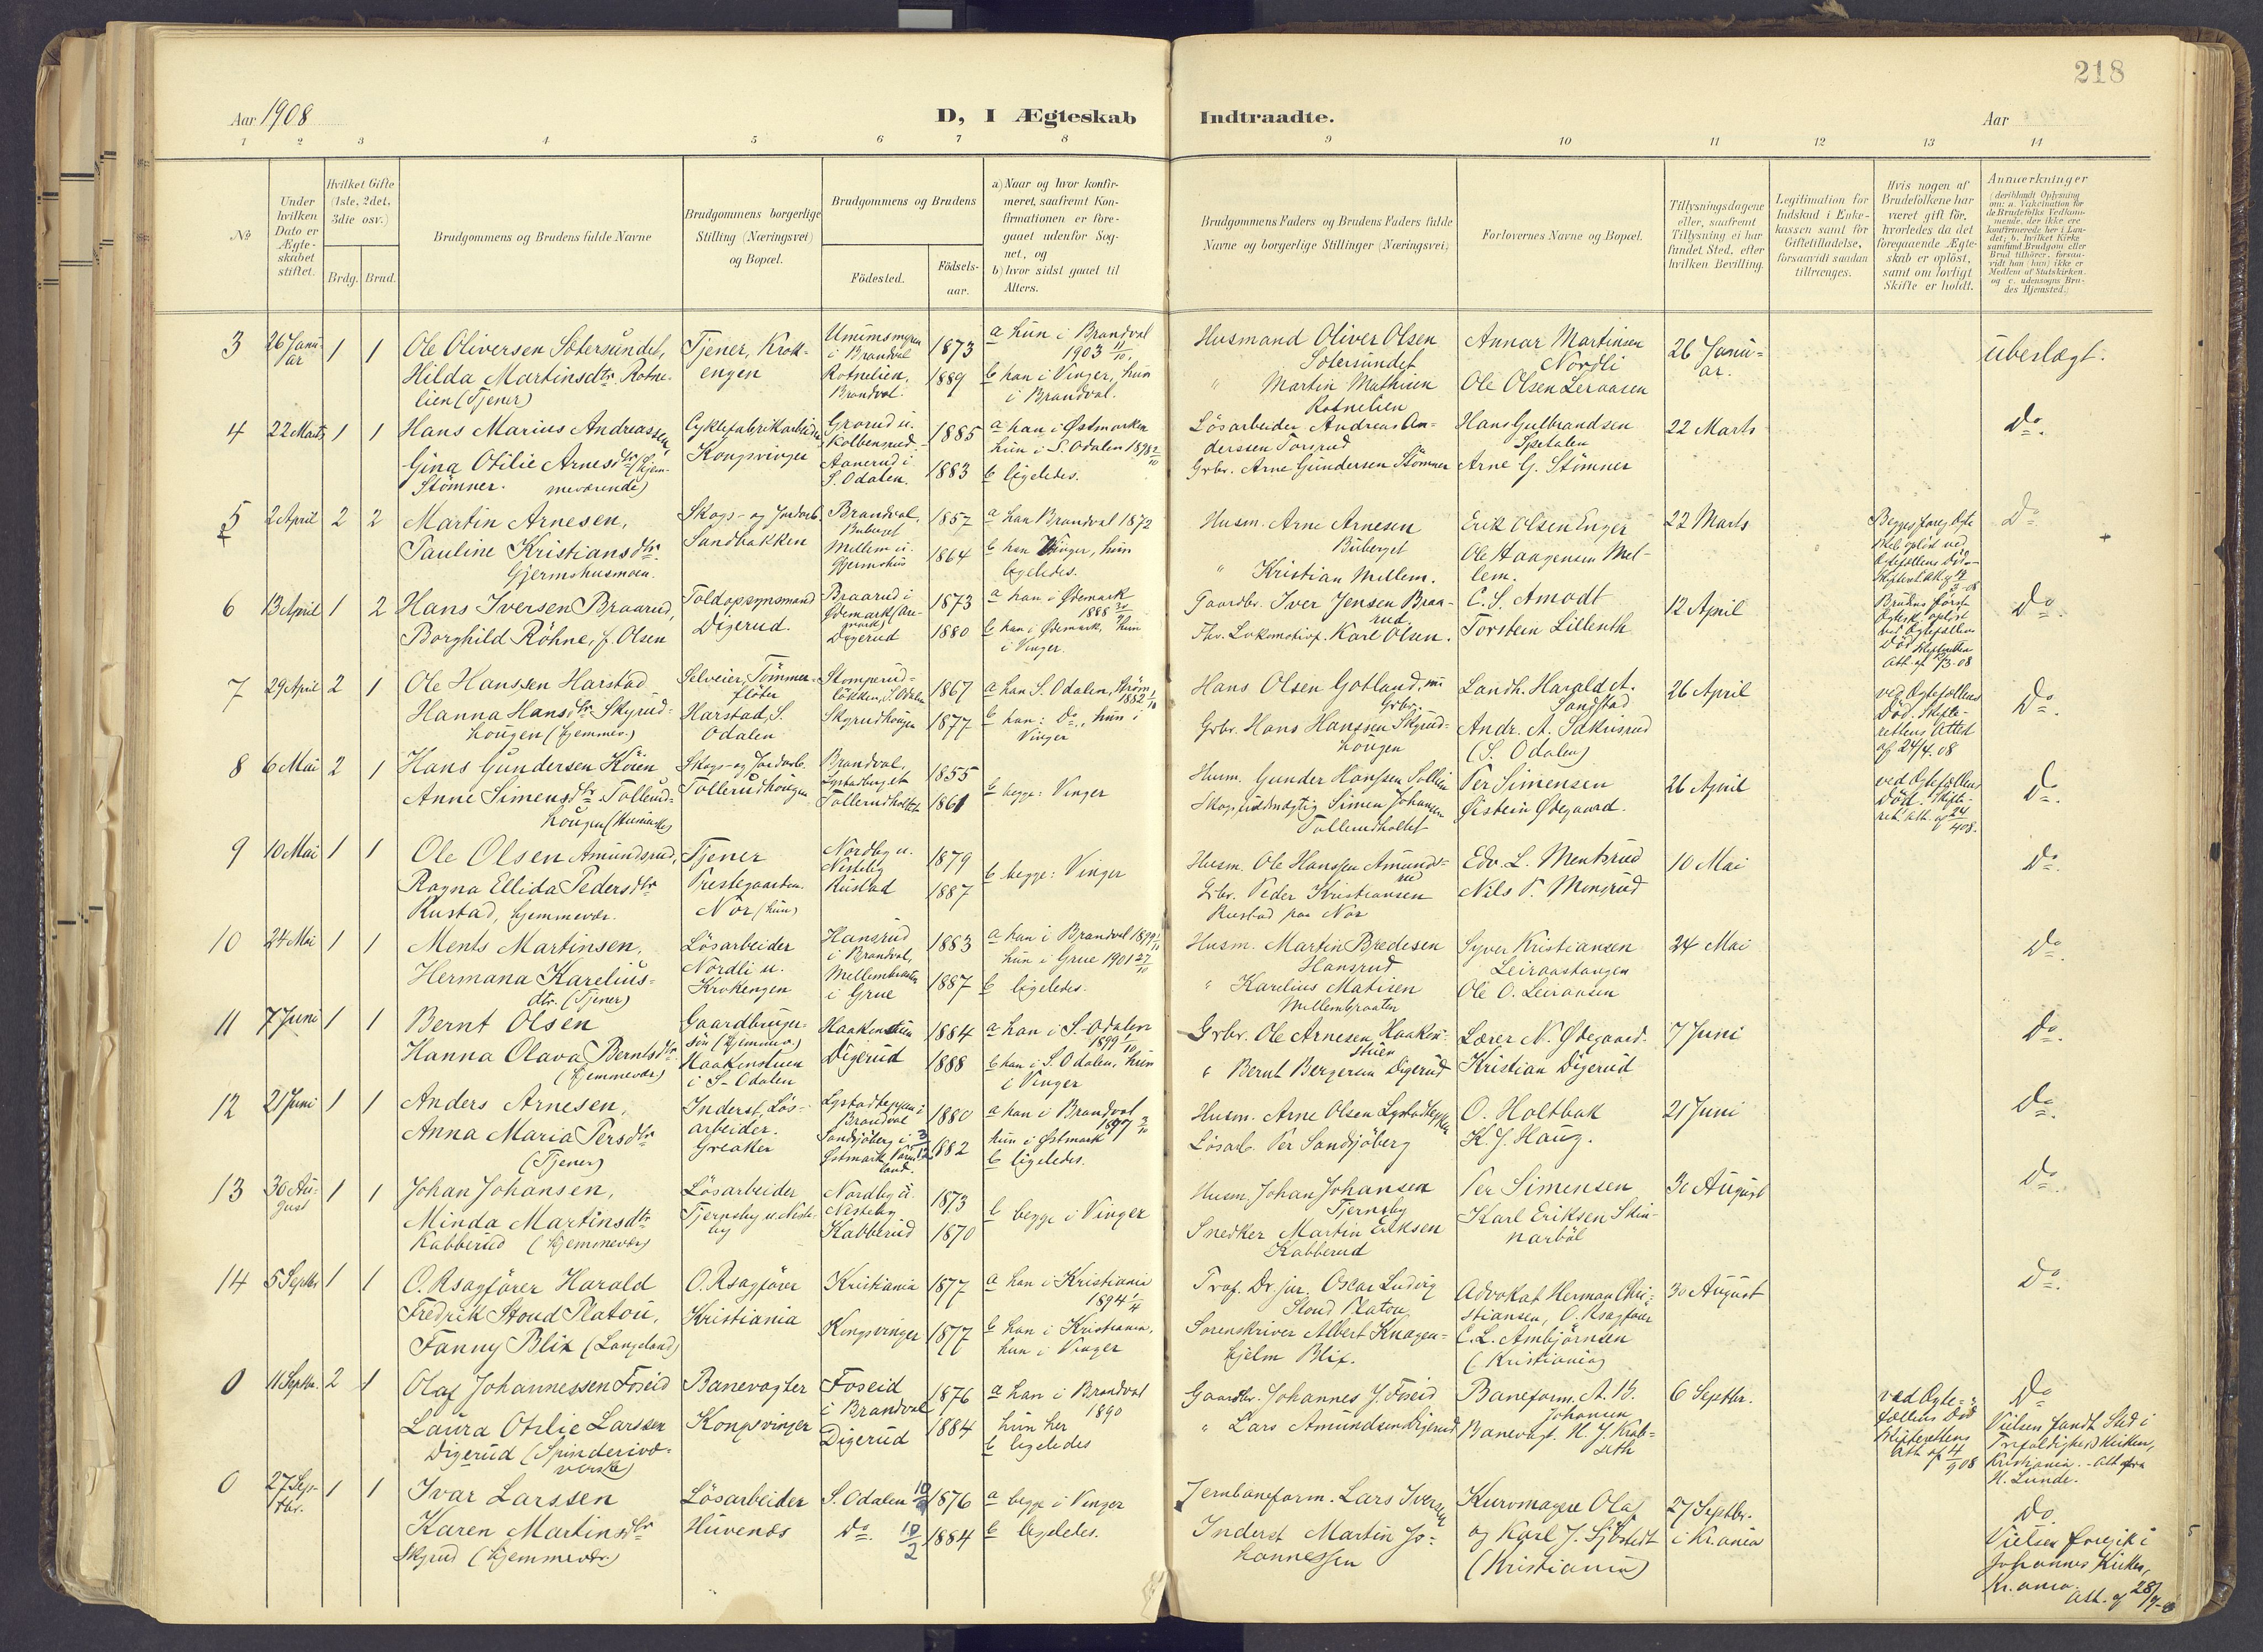 218
Aar 1908
D, I Ægteskab Indtraadte.
Aar
1 2 3 4 5 6 7 8 9 10 11 12 13 14
No
Under hvilken Dato er Ægteskabet stiftet.
Hvilket Gifte (1ste, 2det, 3die osv.)
Brdg. Brud.
Brudgommens og Brudens fulde Navne
Brudgommens borgerlige Stilling (Næringsvei) og Bopæl.
Brudgommens og Brudens
Fødested.
Fødselsaar.
a) Naar og hvor konfirmeret, saafremt Konfirmationen er foregaaet udenfor Sognet, og
b) hvor sidst gaaet til Alters.
Brudgommens Faders og Brudens Faders fulde Navne og borgerlige Stillinger (Næringsvei)
Forlovernes Navne og Bopæl.
Tillysningsdagene eller, saafremt Tillysning ei har fundet Sted, efter hvilken Bevilling.
Legitimation for Indskud i Enkekassen samt for Giftetilladelse, forsaavidt saadan tiltrænges.
Hvis nogen af Brudefolkene har været gift før, hvorledes da det foregaaende Ægteskab er opløst, samt om lovligt Skifte er holdt.
Anmærkninger
3 26 Januar 1 1
Ole Oliversen Sotersundet,
Hilda Martinsdtr Rotnelien (Tjener)
Tjener, Krokengen
i Brandval 1873
Rotnelien, Brandval. 1889
a hun i Brandval 1903 11/10.
b han i Vinger, hun i Brandval.
Husmand Oliver Olsen Sotersundet
" Martin Mathisen Rotnelien
Annar Martinsen Nordli
Ole Olsen Leraasen
26 Januar.
ubeslægt.
4 22 Marts 1 1
Hans Marius Andreassen
Gina Otilie Arnesdtr (hjemmeværende)
Stömner.
Cyklefabrikarbeider
Kongsvinger
Grorud u. Kolbensrud 1885
Aanerud i S. Odalen. 1883
a han i Østmarken
hun i S. Odalen
b ligeledes.
Lösarbeider Andreas Anderssen Torsrud
Grbr. Arne Gundersen Stömner
Hans Gulbrandsen Spetalen
Arne G. Stömner
22 Marts
Do.
5 2 April 2 2
Martin Arnesen,
Pauline Kristiansdtr
Gjermshusmoen.
Skogs- og Jordarb.
Sandbakken
Brandval, Buberget 1857
Mellem u. Gjermshus 1864
a han Brandval 1872
b han Vinger, hun ligeledes.
Husm. Arne Arnesen Buberget
" Kristian Mellem.
Erik Olsen Enger
Ole Haagensen Mellem.
22 Marts
Do
6 13 April 1 2
Hans Iversen Braarud,
Borghild Röhne, f. Olsen
Toldopsynsmand
Digerud.
Braarud i Ødemark 1873
Digerud 1880
a han i Ødemark 1888
b han i Ødemark, hun i Vinger.
Gaardbr. Iver Jensen Braarud.
Fhv. Lokomotivf. Karl Olsen.
C. S. Amodt
Torstein Lilleseth
12 April
Do.
7 29 April 2 1
Ole Hanssen Harstad
Hanna Hansdtr Skyrudhougen (hjemmev.)
Selveier, Tömmerflöter
Harstad, S. Odalen
Stomperudlökken, S. Odalen 1867
Skyrudhougen 1877
a han S. Odalen, Ström 1882
b han: Do, hun i Vinger
Hans Olsen Gotland, Grbr.
Grbr. Hans Hanssen Skyrudhougen
Landh. Harald A. Sandstad
Andr. A. Sakusrud
(S. Odalen)
26 April
ved Ægtefællens Död. Skifterettens Attest af 24/4. 08
Do.
8 6 Mai 2 1
Hans Gundersen Köien
Anne Simensdtr Tollerudhougen
Skogs- og Jordarb.
Tollerudhougen
Brandval, Lystadberget 1855
Tollerudholtet 1861
b begge: Vinger
Husm. Gunder Hanssen Sollien
Skogfuldmægtig Simen Johansen Tollerudholtet
Per Simensen
Øistein Ødegaard.
26 April
Do.
9 10 Mai 1 1
Ole Olsen Amundsrud,
Ragna Ellida Pedersdtr
Rustad, hjemmevær.
Tjener
Prestegaarden.
Nor (hun)
Nordby u. Nesteby 1879
Rustad 1887
b begge: Vinger
Husm. Ole Hanssen Amundsrud
Grbr. Peder Kristiansen Rustad paa Nor
Edv. L. Mentsrud
Nils P. Monsrud
10 Mai
Do.
10 24 Mai 1 1
Ments Martinsen,
Hermana Kareliusdtr. (Tjener)
Lösarbeider
Nordli u. Krokengen
Hansrud i Brandval, 1883
Mellembraaten i Grue 1887
a han i Brandval 1899
hun i Grue 1901 27/10
b ligeledes.
Husm. Martin Bredesen Hansrud
" Karelius Matisen Mellembraaten
Syver Kristiansen Leiraastangen
Ole O. Leiraasen
24 Mai
Do.
11 7 Juni 1 1
Bernt Olsen
Hanna Olava Berntsdtr
(hjemmevær)
Gaardbrugersön (hjemmev.)
Haakenstuen i S- Odalen
Haakenstuen 1884
Digerud 1888
a han i S.-Odalen 1899
b han i S. Odalen, hun i Vinger
Grbr. Ole Arnesen Haakenstuen
" Bernt Bergersen Digerud
Lærer N. Ødegaard.
Kristian Digerud
7 Juni
Do.
12 21 Juni 1 1
Anders Arnesen,
Anna Maria Persdtr
(Tjener)
Inderst, Lösarbeider.
Greaker
Lystadteppen i Brandval 1880
Sandsjöberg i Østmark, Värmland. 1882
a han i Brandval 1897
hun i Østmark
b ligeledes.
Husm. Arne Olsen Lystadteppen
Lösarb. Per Sandsjöberg
O. Holtbak
K. J. Haug.
21 Juni
Do.
13 30 August 1 1
Johan Johansen,
Minda Martinsdtr
Kabberud (hjemmevær)
Lösarbeider
Tjernsby u. Nesteby
Nordby u. Nesteby 1873
Kabberud 1870
b begge i Vinger
Husm. Johan Johansen Tjernsby
Snedker Martin Eriksen Kabberud
Per Simensen
Karl Eriksen Skinnarböl
30 August
Do.
14 5 Septbr 1 1
O. Rsagförer Harald
Fredrik Stoud Platou,
Fanny Blix (Langeland)
O. Rsagförer
Kristiania
Kristiania 1877
Kongsvinger 1877
a han i Kristiania 1894 1/4
b han i Kristiania, hun i Vinger
Prof. Dr. jur. Oscar Ludvig Stoud Platou
Sorenskriver Albert Knagenhjelm Blix.
Advokat Herman Christiansen, O. Rsagförer
C. L. Ambjörnsen
(Kristiania)
30 August
Do.
0 11 Septbr. 2 1
Olaf Johannessen Foseid
Laura Otilie Larssen
Digerud (Spinderiværkske)
Banevogter
Kongsvinger
Foseid i Brandval 1876
Digerud 1884
a han i Brandval 1890
hun her
b ligeledes
Gaardbr. Johannes J. Foseid
" Lars Amundsen Digerud
Baneform. A. B. Johansen
Banevogt. H. J. Krabseth
6 Septbr.
ved Ægtefællens Död
Skifterettens Att. af 4/9 08
Do
Vielsen fandt Sted i Trefoldigheds Kirken, Kristiania. - Att fra H. Lunde.
0 27 Septbr. 1 1
Ivar Larssen
Karen Martinsdtr
Skyrud (hjemmevær)
Lösarbeider
Huvenes
S. Odalen 1876
Do. 10/2 1884
a begge i Vinger
b ligeledes.
Jernbaneform. Lars Iversen
Inderst Martin Johannessen
Kurvmagere Olaf og Karl J. Sjöstedt
(Kristiania)
27 Septbr. i Kr.ania
Do.
Vielsen foregik i Johannes Kirken, Kr.ania.
Att. af 28/9-